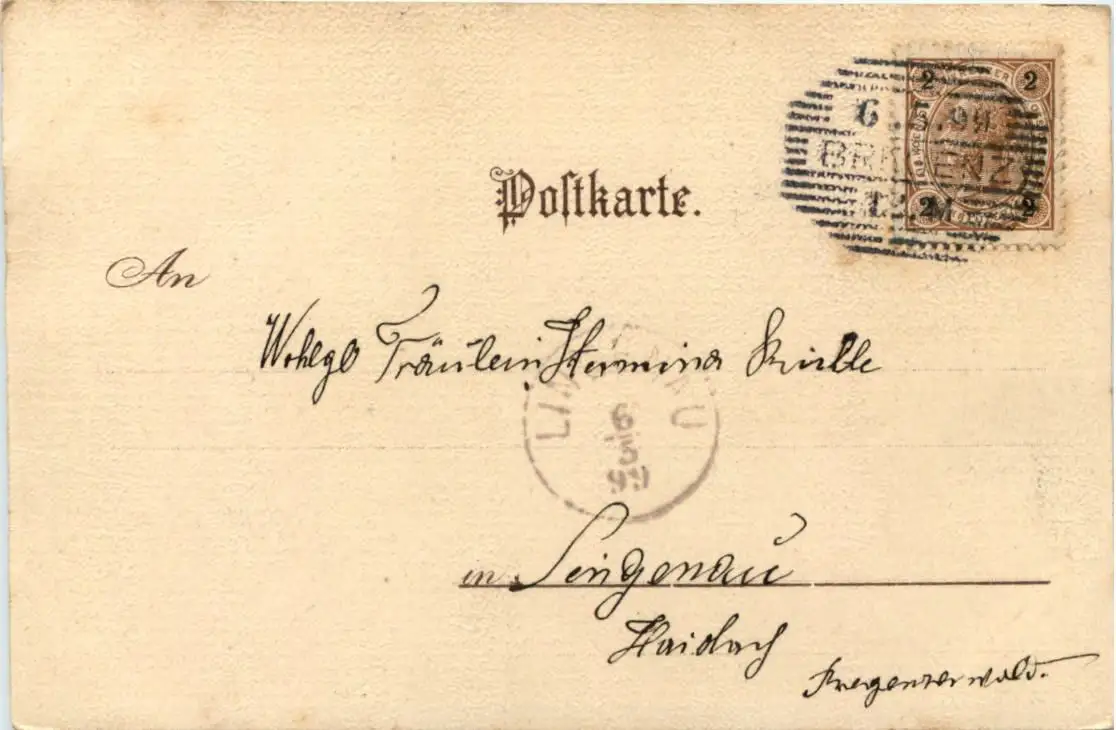 Postkarte.
2 2
6.5.99
BREGENZ
2 2
An
Wohlgb Fräulein Hermina
LINGENAU
6/5
99
in Lingenau
Haidach
Bregenzerwald.